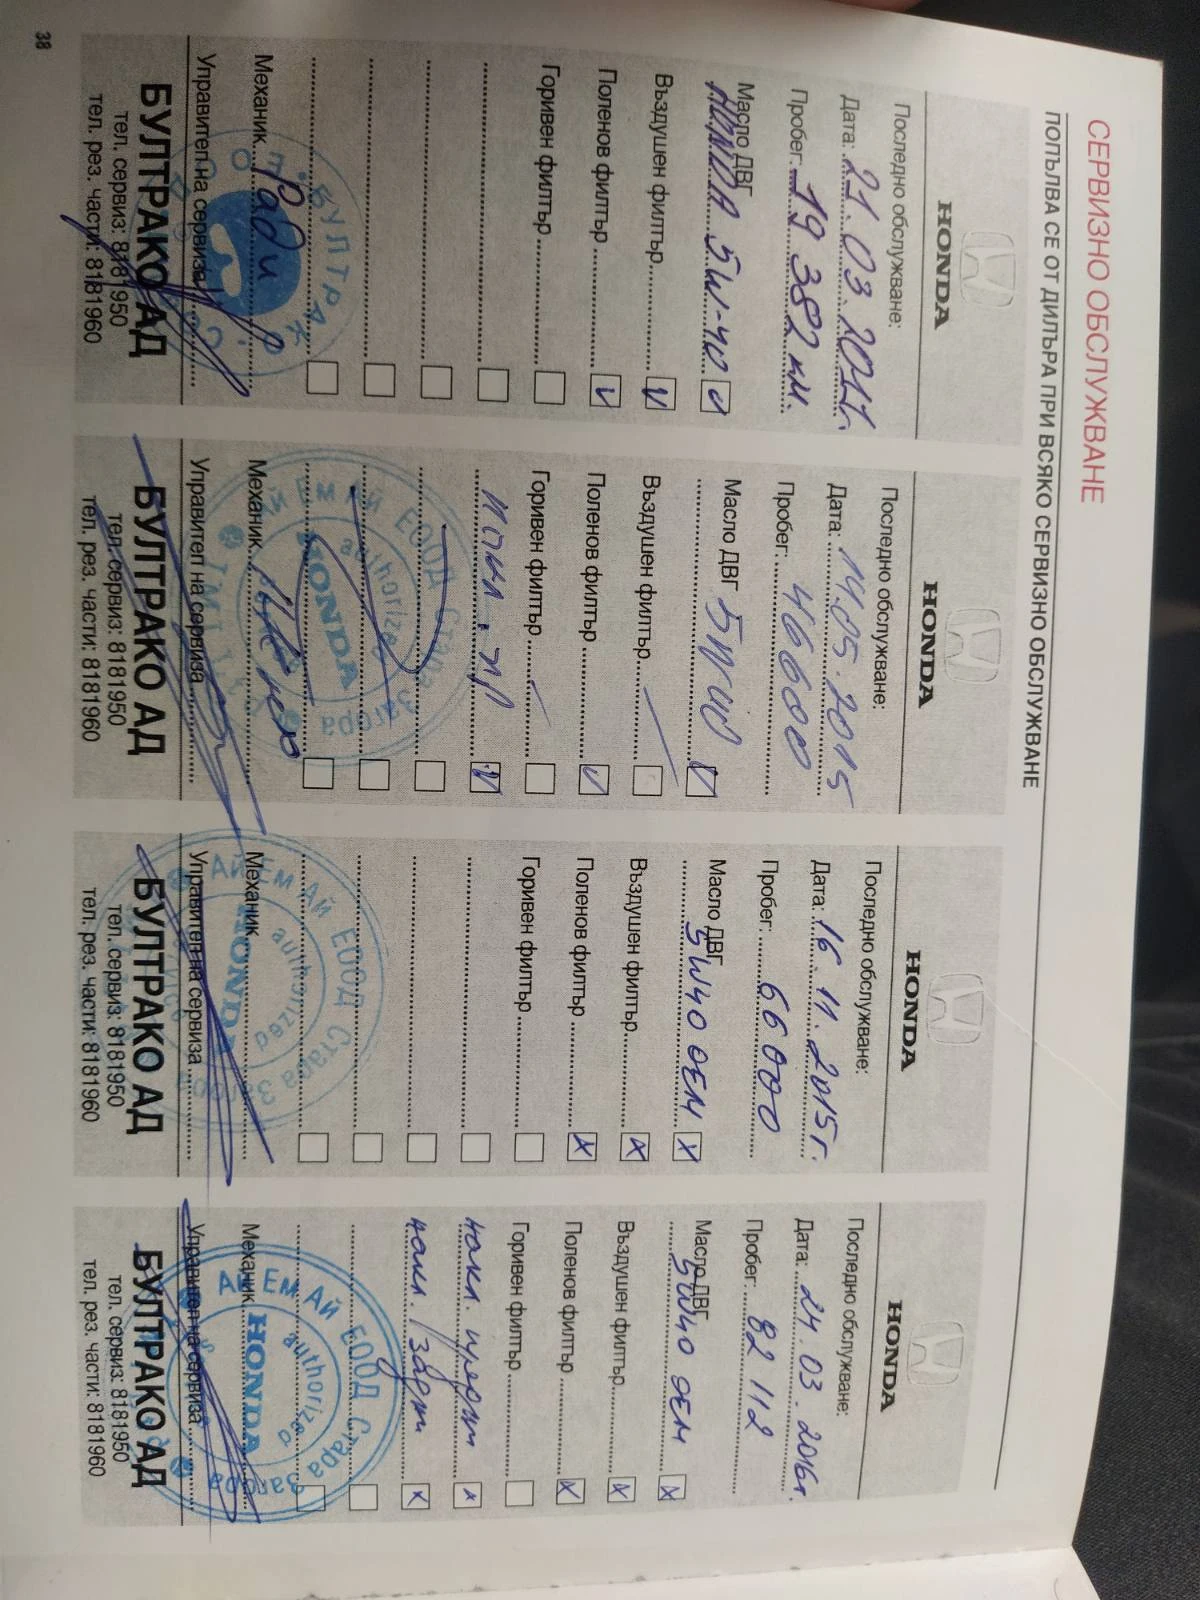 СЕРВИЗНО ОБСЛУЖВАНЕ
ПОПЪЛВА СЕ ОТ ДИЛЪРА ПРИ ВСЯКО СЕРВИЗНО ОБСЛУЖВАНЕ
HONDA
Последно обслужване:
Дата: 21.03.2011г.
Пробег: 19 382 км.
Масло ДВГ
HONDA 5W-40 V
Въздушен филтър V
Поленов филтър V
Горивен филтър
Механик Ради
Управител на сервиза
БУЛТРАКО АД
тел. сервиз: 8181950
тел. рез. части: 8181960
HONDA
Последно обслужване:
Дата: 14.05.2015
Пробег: 46600
Масло ДВГ 5W40 V
Въздушен филтър
Поленов филтър V
Горивен филтър
накл. пр V
Механик
Управител на сервиза
АЙ ЕМ АЙ ЕООД Стара Загора
authorized
HONDA
БУЛТРАКО АД
тел. сервиз: 8181950
тел. рез. части: 8181960
HONDA
Последно обслужване:
Дата: 16.11.2015г.
Пробег: 66000
Масло ДВГ
5W40 OEM X
Въздушен филтър X
Поленов филтър X
Горивен филтър
Механик
Управител на сервиза
АЙ ЕМ АЙ ЕООД Стара Загора
authorized
HONDA
БУЛТРАКО АД
тел. сервиз: 8181950
тел. рез. части: 8181960
HONDA
Последно обслужване:
Дата: 24.03.2016г.
Пробег: 82 112
Масло ДВГ
5W40 OEM X
Въздушен филтър X
Поленов филтър X
Горивен филтър
накл. предни X
накл. задни X
Механик
Управител на сервиза
АЙ ЕМ АЙ ЕООД Стара Загора
authorized
HONDA
БУЛТРАКО АД
тел. сервиз: 8181950
тел. рез. части: 8181960
38